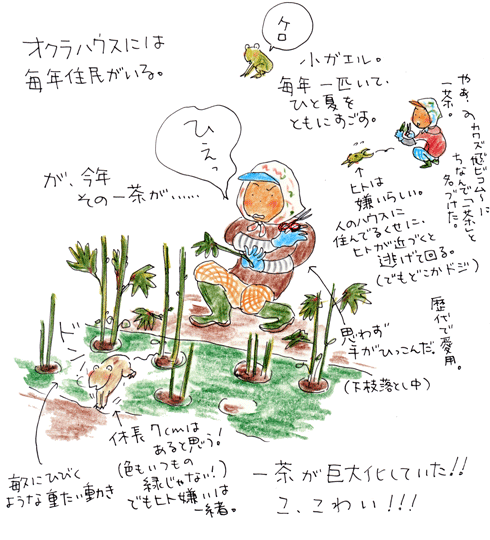 オクラハウスには
毎年住民がいる。
ケロ
小ガエル。
毎年一匹いて、
ひと夏を
ともにすごす。
ちなんで「一茶」と
名づけた。
一茶。
↑
ヒトは
嫌いらしい。
人のハウスに
住んでるくせに、
ヒトが近づくと
逃げて回る。
(でもどこかドジ)
が、今年
その一茶が……
ひえっ
歴代で愛用。
思わず
手がひっこんだ。
(下枝落とし中)
ドン
体長7cmは
あると思う!
(色もいつもの
緑じゃない!)
でもヒト嫌いは
一緒。
ひびく
ような重たい動き
一茶が巨大化していた!!
こ、こわい!!!